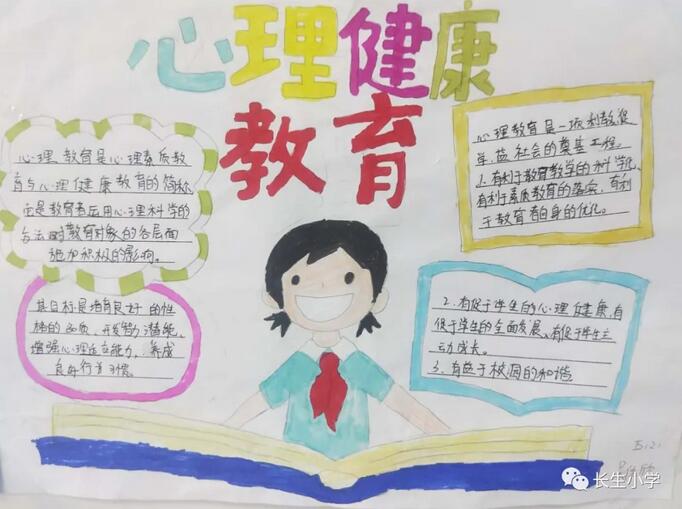 心理健康
教育
心理教育是心理素质教
育与心理健康教育的简称
它是教育者应用心理科学的
方法对教育对象的各层面
施加积极的影响。
其目标是培育良好的性
格的品质、开发智力潜能、
增强心理适应能力、养成
良好行为习惯。
心理教育是一项利教、促
学、益社会的奠基工程。
1.有利于教育教学的科学化、
有利于素质教育的落实、有利
于教育者自身的优化。
2.有促于学生的心理健康、有
促于学生的全面发展、有促于学生主
动成长。
3.有益于校园的和谐
五(2)
长生小学